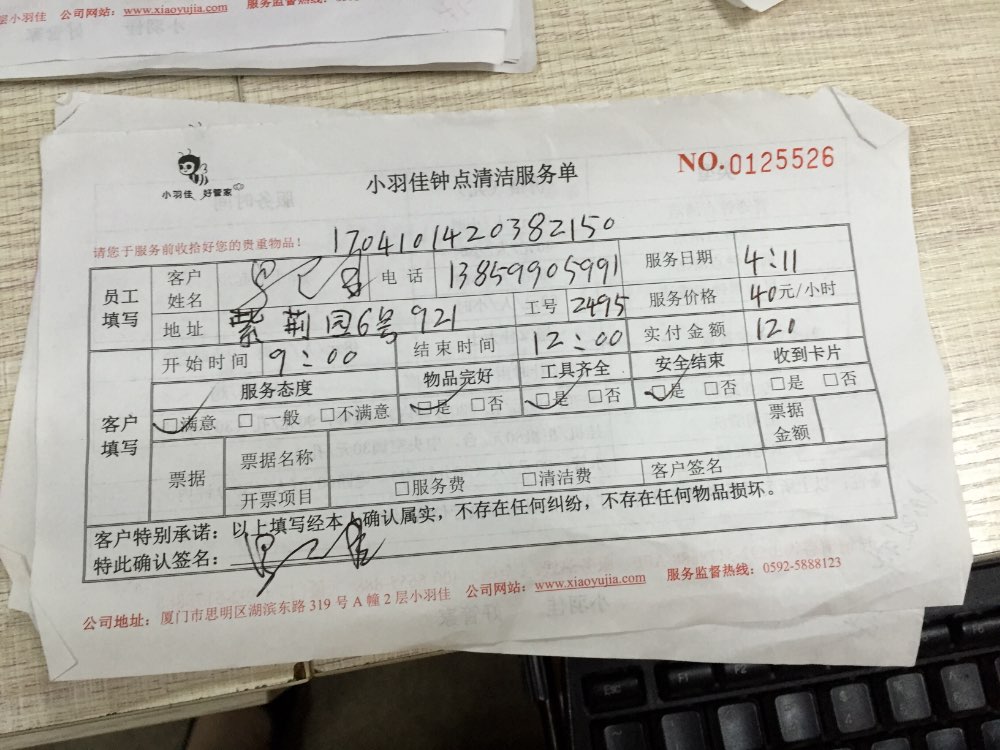 层小羽佳 公司网站：www.xiaoyujia.com 服务监督热线：
小羽佳 好管家
小羽佳钟点清洁服务单
NO.0125526
请您于服务前收拾好您的贵重物品！
1704101420382150
员工填写 客户姓名 电话 13859905991 服务日期 4:11
地址 紫荆园6号921 工号 2495 服务价格 40元/小时
开始时间 9:00 结束时间 12:00 实付金额 120
客户填写 服务态度 物品完好 工具齐全 安全结束 收到卡片
☑满意 □一般 □不满意 ☑是 □否 ☑是 □否 ☑是 □否 □是 □否
票据 票据名称 票据金额
开票项目 □服务费 □清洁费 客户签名
客户特别承诺：以上填写经本人确认属实，不存在任何纠纷，不存在任何物品损坏。
特此确认签名：
公司地址：厦门市思明区湖滨东路 319 号 A 幢 2 层小羽佳 公司网站：www.xiaoyujia.com 服务监督热线：0592-5888123